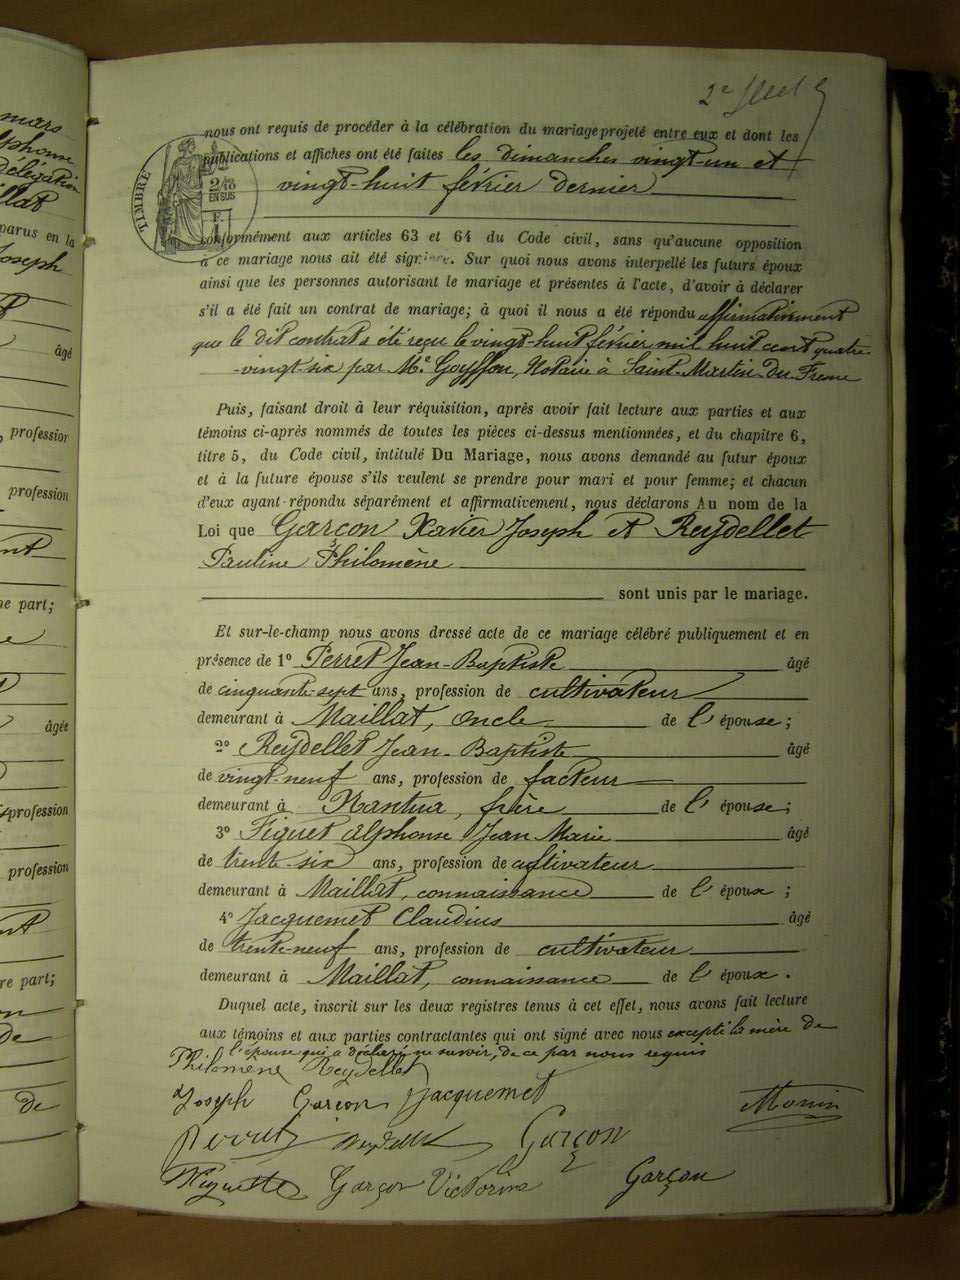 mars
Alphonse
Délégation
Maillat
parus en la
Joseph
âgé
, profession
profession
ne part;
âgée
profession
profession
re part;
de
de
2e
nous ont requis de procéder à la célébration du mariage projeté entre eux et dont les
publications et affiches ont été faites les dimanches vingt-un et
vingt-huit février dernier
TIMBRE
2/10
EN SUS
conformément aux articles 63 et 64 du Code civil, sans qu'aucune opposition
à ce mariage nous ait été signifiée. Sur quoi nous avons interpellé les futurs époux
ainsi que les personnes autorisant le mariage et présentes à l'acte, d'avoir à déclarer
s'il a été fait un contrat de mariage; à quoi il nous a été répondu affirmativement
que le dit contrat a été reçu le vingt-huit février mil huit cent quatre
-vingt-six par Me Goyffon, Notaire à Saint-Martin-du-Fresne
Puis, faisant droit à leur réquisition, après avoir fait lecture aux parties et aux
témoins ci-après nommés de toutes les pièces ci-dessus mentionnées, et du chapitre 6,
titre 5, du Code civil, intitulé Du Mariage, nous avons demandé au futur époux
et à la future épouse s'ils veulent se prendre pour mari et pour femme; et chacun
d'eux ayant répondu séparément et affirmativement, nous déclarons Au nom de la
Loi que Garçon Xavier Joseph et Reydellet
Pauline Philomène
sont unis par le mariage.
Et sur-le-champ nous avons dressé acte de ce mariage célébré publiquement et en
présence de 1° Perret Jean-Baptiste âgé
de cinquante-sept ans, profession de cultivateur
demeurant à Maillat, oncle de l'épouse;
2° Reydellet Jean-Baptiste âgé
de vingt-neuf ans, profession de facteur
demeurant à Nantua, frère de l'épouse;
3° Figuet Alphonse Jean Marie âgé
de trente-six ans, profession de cultivateur
demeurant à Maillat, connaissance de l'époux;
4° Jacquemet Claudius âgé
de trente-neuf ans, profession de cultivateur
demeurant à Maillat, connaissance de l'époux.
Duquel acte, inscrit sur les deux registres tenus à cet effet, nous avons fait lecture
aux témoins et aux parties contractantes qui ont signé avec nous excepté la mère de
l'épouse qui a déclaré ne savoir, de ce par nous requis
Philomène Reydellet
Joseph Garçon Jacquemet
Monin
Perret Reydellet Garçon
Garçon Victorine Garçon